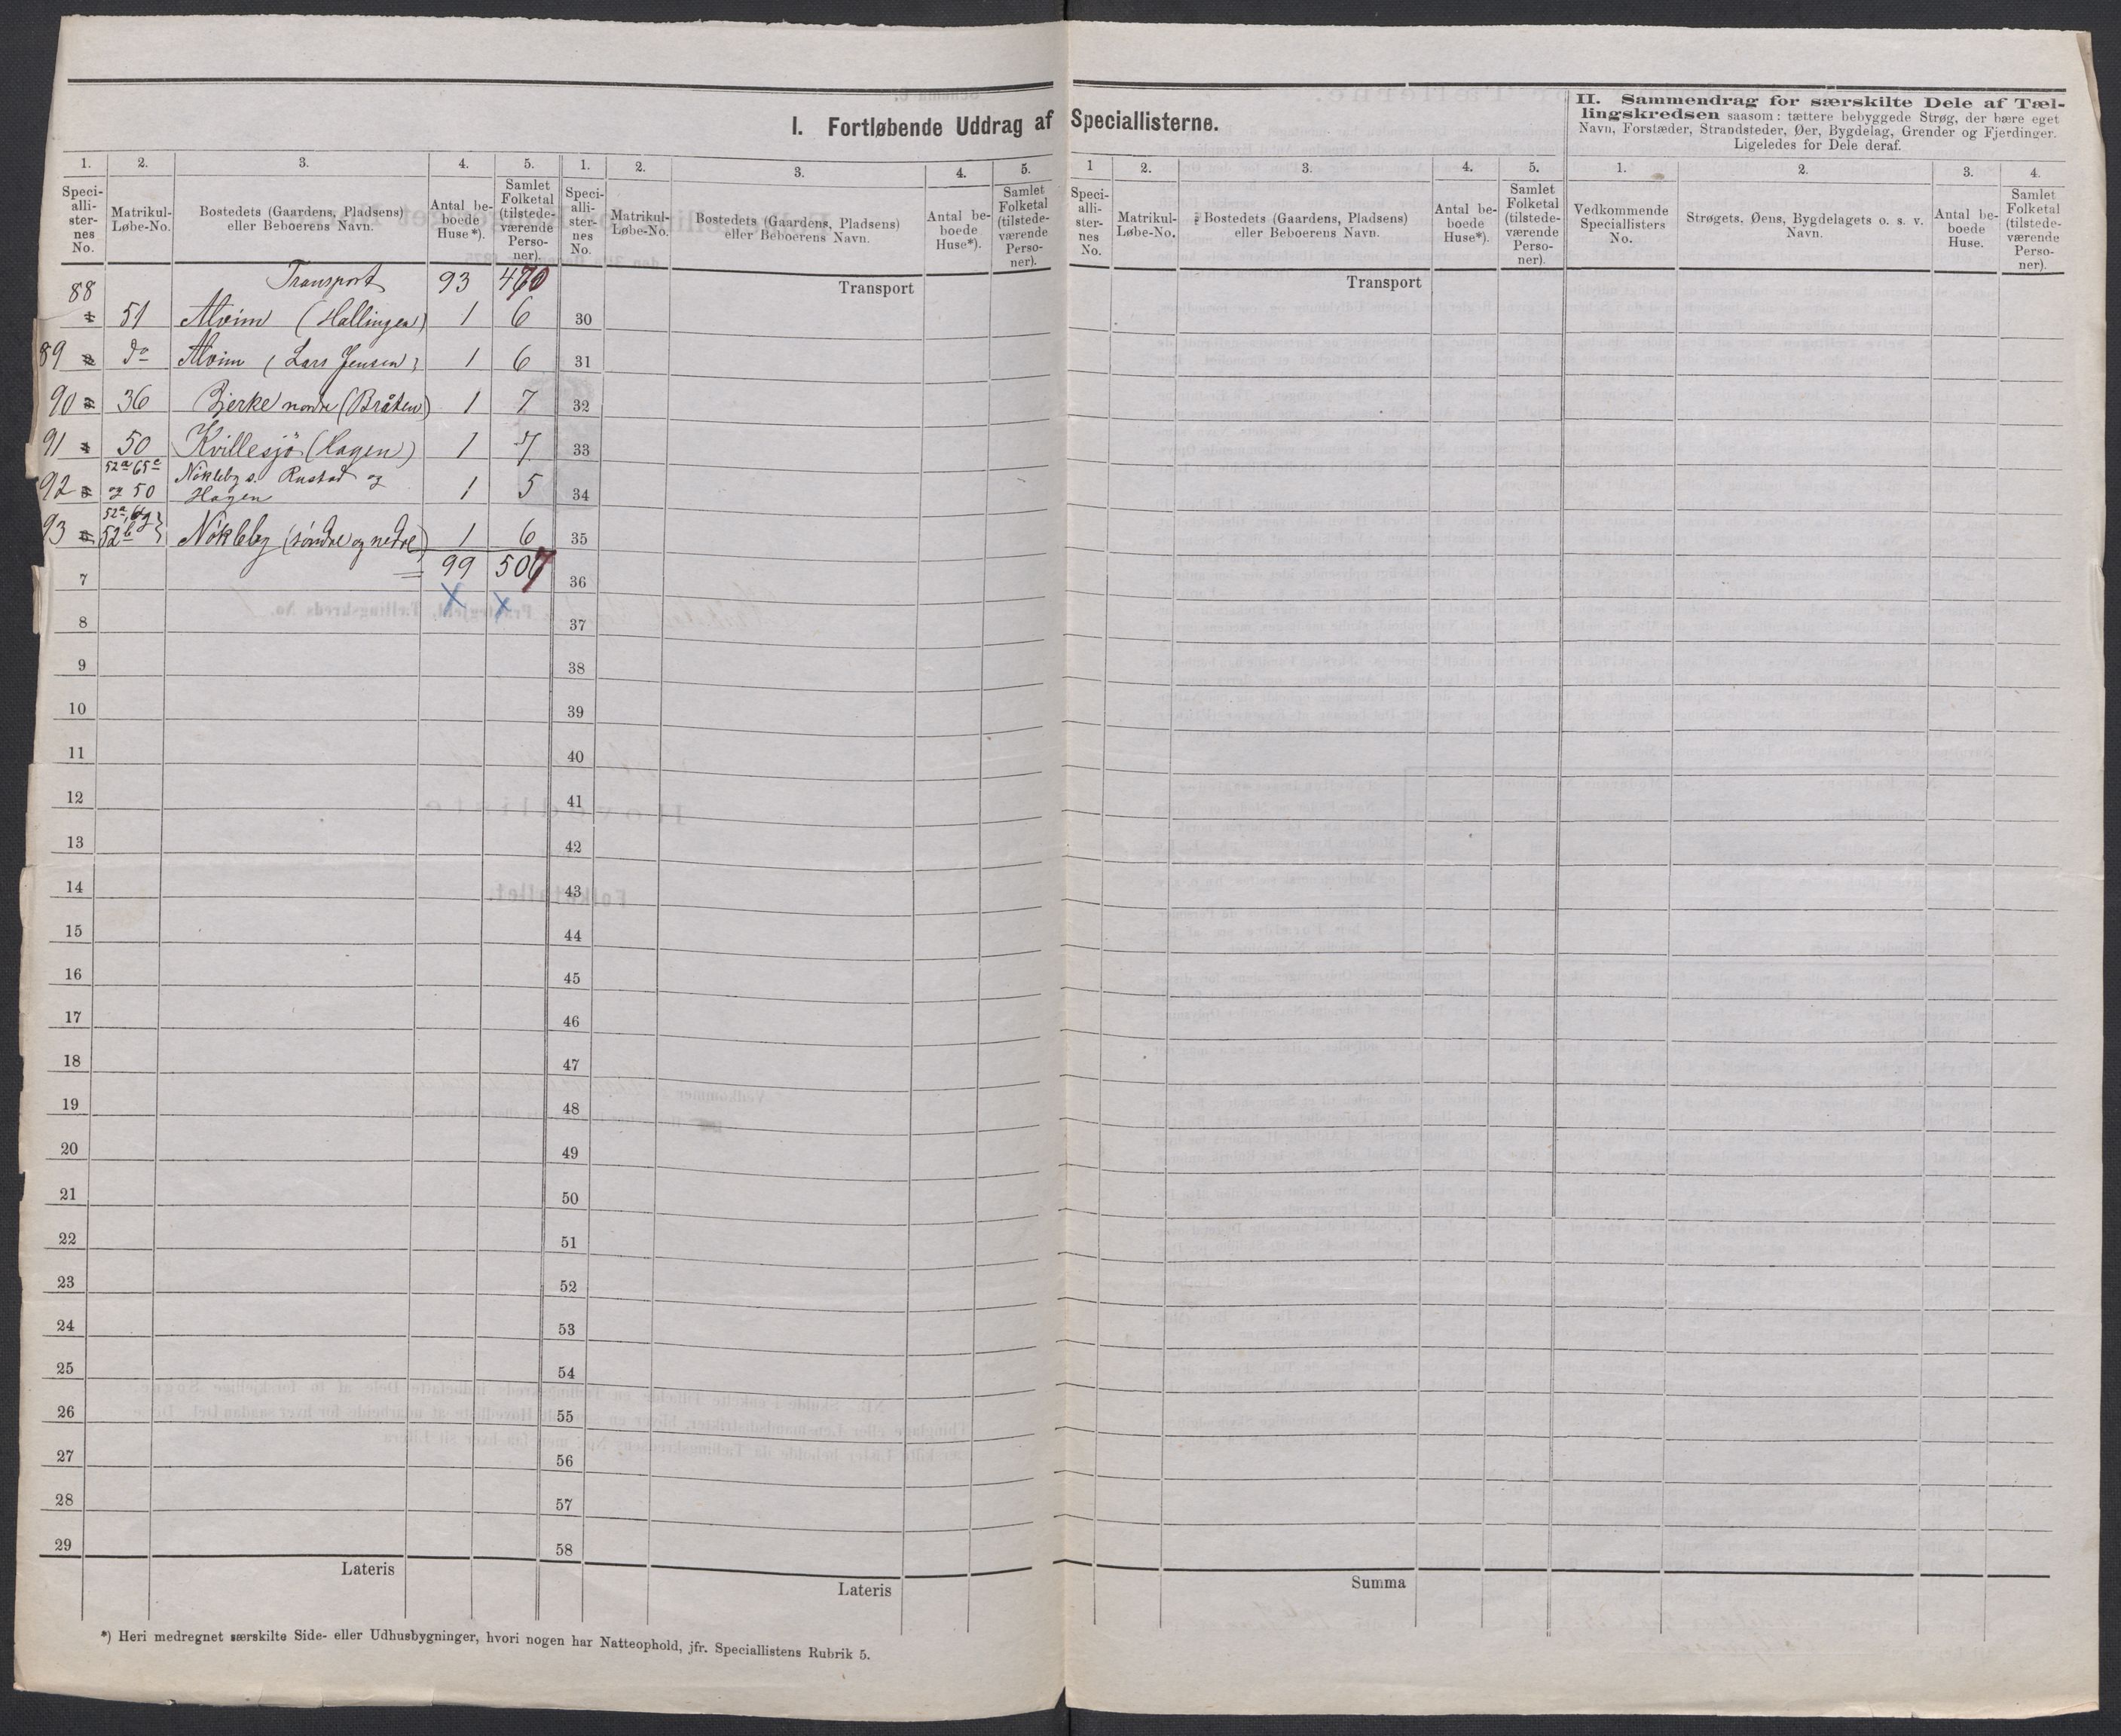 I. Fortløbende Uddrag af Speciallisterne.
II. Sammendrag for særskilte Dele af Tæl-
lingskredsen saasom: tættere bebyggede Strøg, der bære eget
Navn, Forstæder, Strandsteder, Øer, Bygdelag, Grender og Fjerdinger.
Ligeledes for Dele deraf.
1. 2. 3. 4. 5. 1. 2. 3. 4. 5.
Speci-
alli-
ster-
nes
No.
Matrikul-
Løbe-No.
Bostedets (Gaardens, Pladsens)
eller Beboerens Navn.
Antal be-
boede
Huse*).
Samlet
Folketal
(tilstede-
værende
Perso-
ner).
Speci-
alli-
ster-
nes
No.
Matrikul-
Løbe-No.
Bostedets (Gaardens, Pladsens)
eller Beboerens Navn.
Antal be-
boede
Huse*).
Samlet
Folketal
(tilstede-
værende
Perso-
ner).
Transport 93 470
88 51 Alvim (Hallingen) 1 6
89 do Alvim (Lars Jensen) 1 6
90 36 Bjerke nordre (Bråten) 1 7
91 50 Kvillesjö (Hagen) 1 7
92 52a 65c og 50 Nökleby s. Rustad og
Hagen 1 5
93 52a, 52b Nökleby (söndre og nedre) 1 6
99 507
7
8
9
10
11
12
13
14
15
16
17
18
19
20
21
22
23
24
25
26
27
28
29
Lateris
Transport
30
31
32
33
34
35
36
37
38
39
40
41
42
43
44
45
46
47
48
49
50
51
52
53
54
55
56
57
58
Lateris
*) Heri medregnet særskilte Side- eller Udhusbygninger, hvori nogen har Natteophold, jfr. Speciallistens Rubrik 5.
1 2. 3. 4. 5. 1. 2. 3. 4.
Speci-
alli-
ster-
nes
No.
Matrikul-
Løbe-No.
Bostedets (Gaardens, Pladsens)
eller Beboerens Navn.
Antal be-
boede
Huse*).
Samlet
Folketal
(tilstede-
værende
Perso-
ner).
Vedkommende
Speciallisters
No.
Strøgets, Øens, Bygdelagets o. s. v.
Navn.
Antal be-
boede
Huse.
Samlet
Folketal
(tilstede-
værende
Perso-
ner).
Transport
Summa